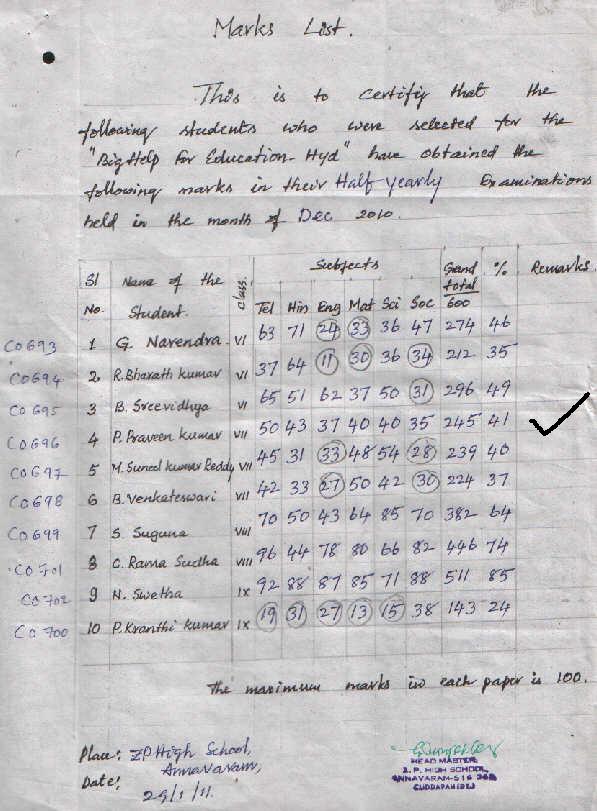 Marks List.
This is to certifiy that the
following students who were selected for the
"Big Help For Education - Hyd" have obtained the
following marks in their Half yearly Examinations
held in the month of Dec 2010.
Sl No. Name of the Student. Class. Subjects Grand total 600 % Remarks
Tel Hin Eng Mat Sci Soc
CO693 1 G. Narendra VI 63 71 24 33 36 47 274 46
CO694 2 R.Bharath kumar VI 37 64 11 30 36 34 212 35
CO695 3 B. Sreevidhya VI 65 51 62 37 50 31 296 49
CO696 4 P. Praveen kumar VII 50 43 37 40 40 35 245 41
CO697 5 M. Suneel kumar Reddy VII 45 31 33 48 54 28 239 40
CO698 6 B. Venkateswari VII 42 33 27 50 42 30 224 37
CO699 7 S. Suguna VIII 70 50 43 64 85 70 382 64
CO701 8 C. Rama Sudha VIII 96 44 78 80 66 82 446 74
CO702 9 N. Swetha IX 92 88 87 85 71 88 511 85
CO700 10 P.Kranthi kumar IX 19 31 27 13 15 38 143 24
The maximum marks in each paper is 100.
Place: ZP High School,
Annavaram,
Date: 29/1/11.
HEAD MASTER
Z. P. HIGH SCHOOL,
ANNAVARAM-516
CUDDAPAH (DT)